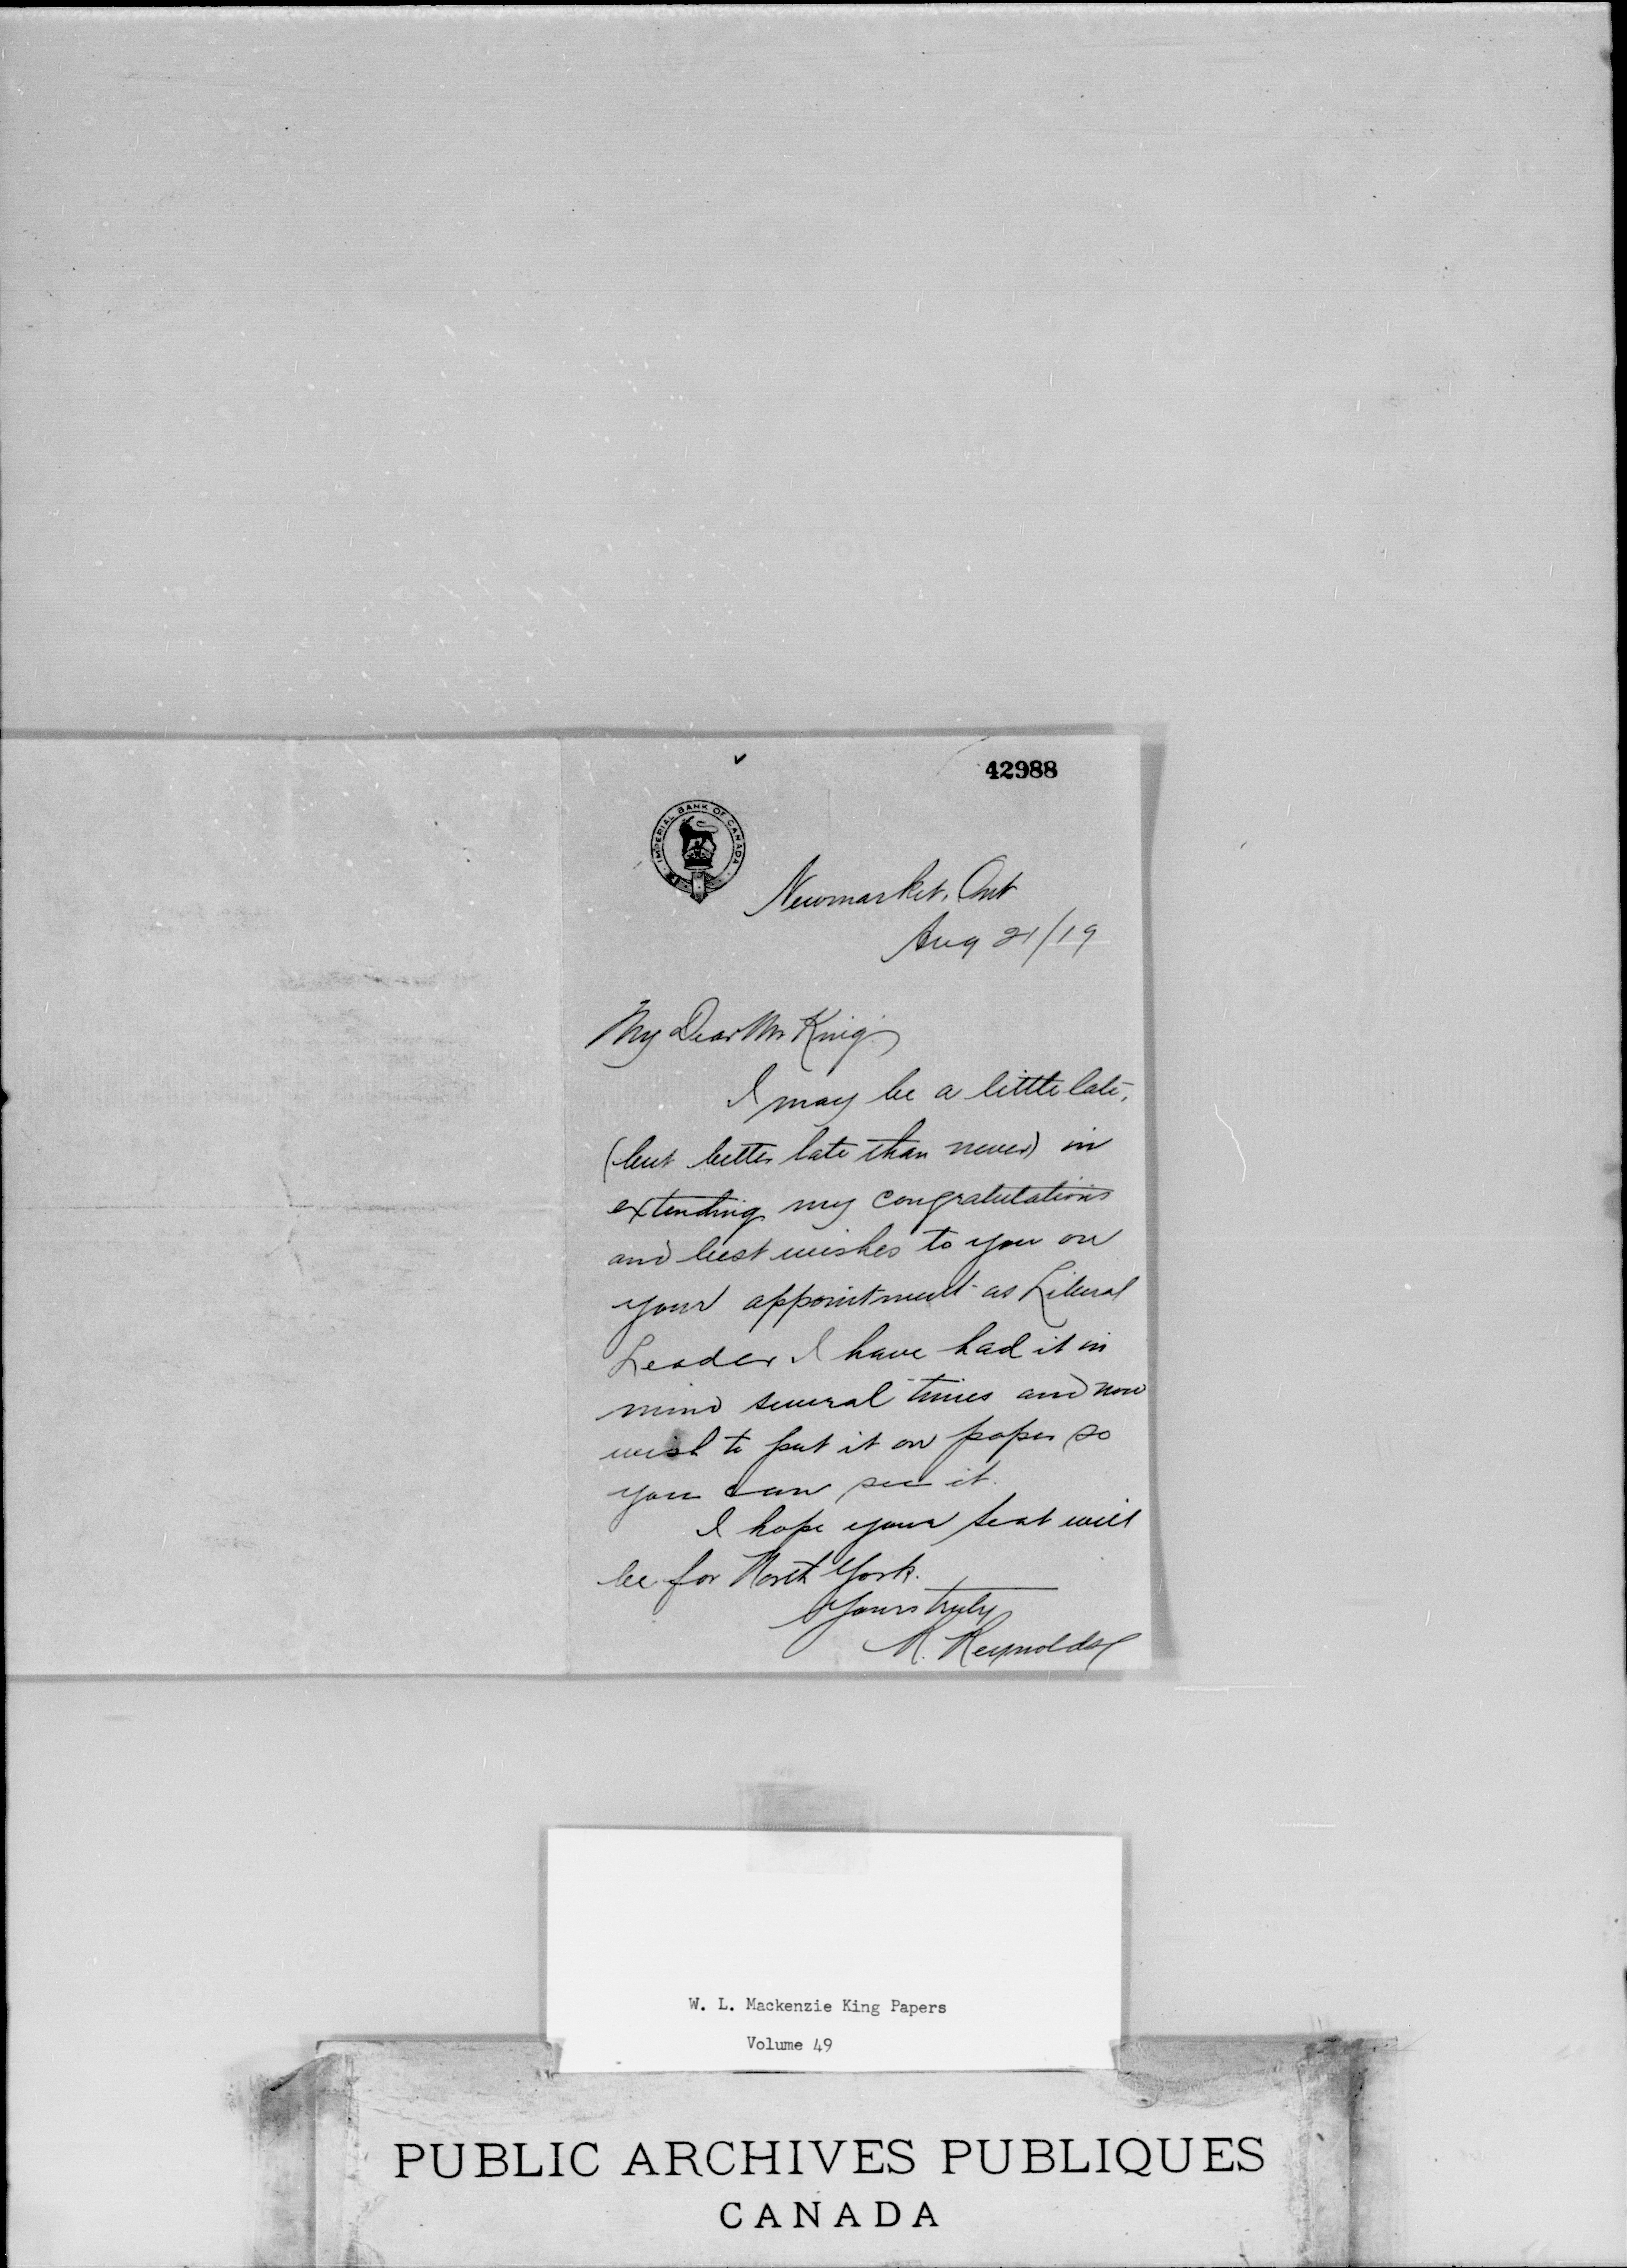 42988
IMPERIAL BANK OF CANADA
Newmarket, Ont
Aug 21/19
My Dear Mr King:
I may be a little late,
(but better late than never) in
extending my congratulations
and best wishes to you on
your appointment as Liberal
Leader I have had it in
mind several times and now
wish to put it on paper so
you can see it.
I hope your seat will
be for North York.
Yours truly
R. Reynolds
W. L. Mackenzie King Papers
Volume 49
PUBLIC ARCHIVES PUBLIQUES
CANADA